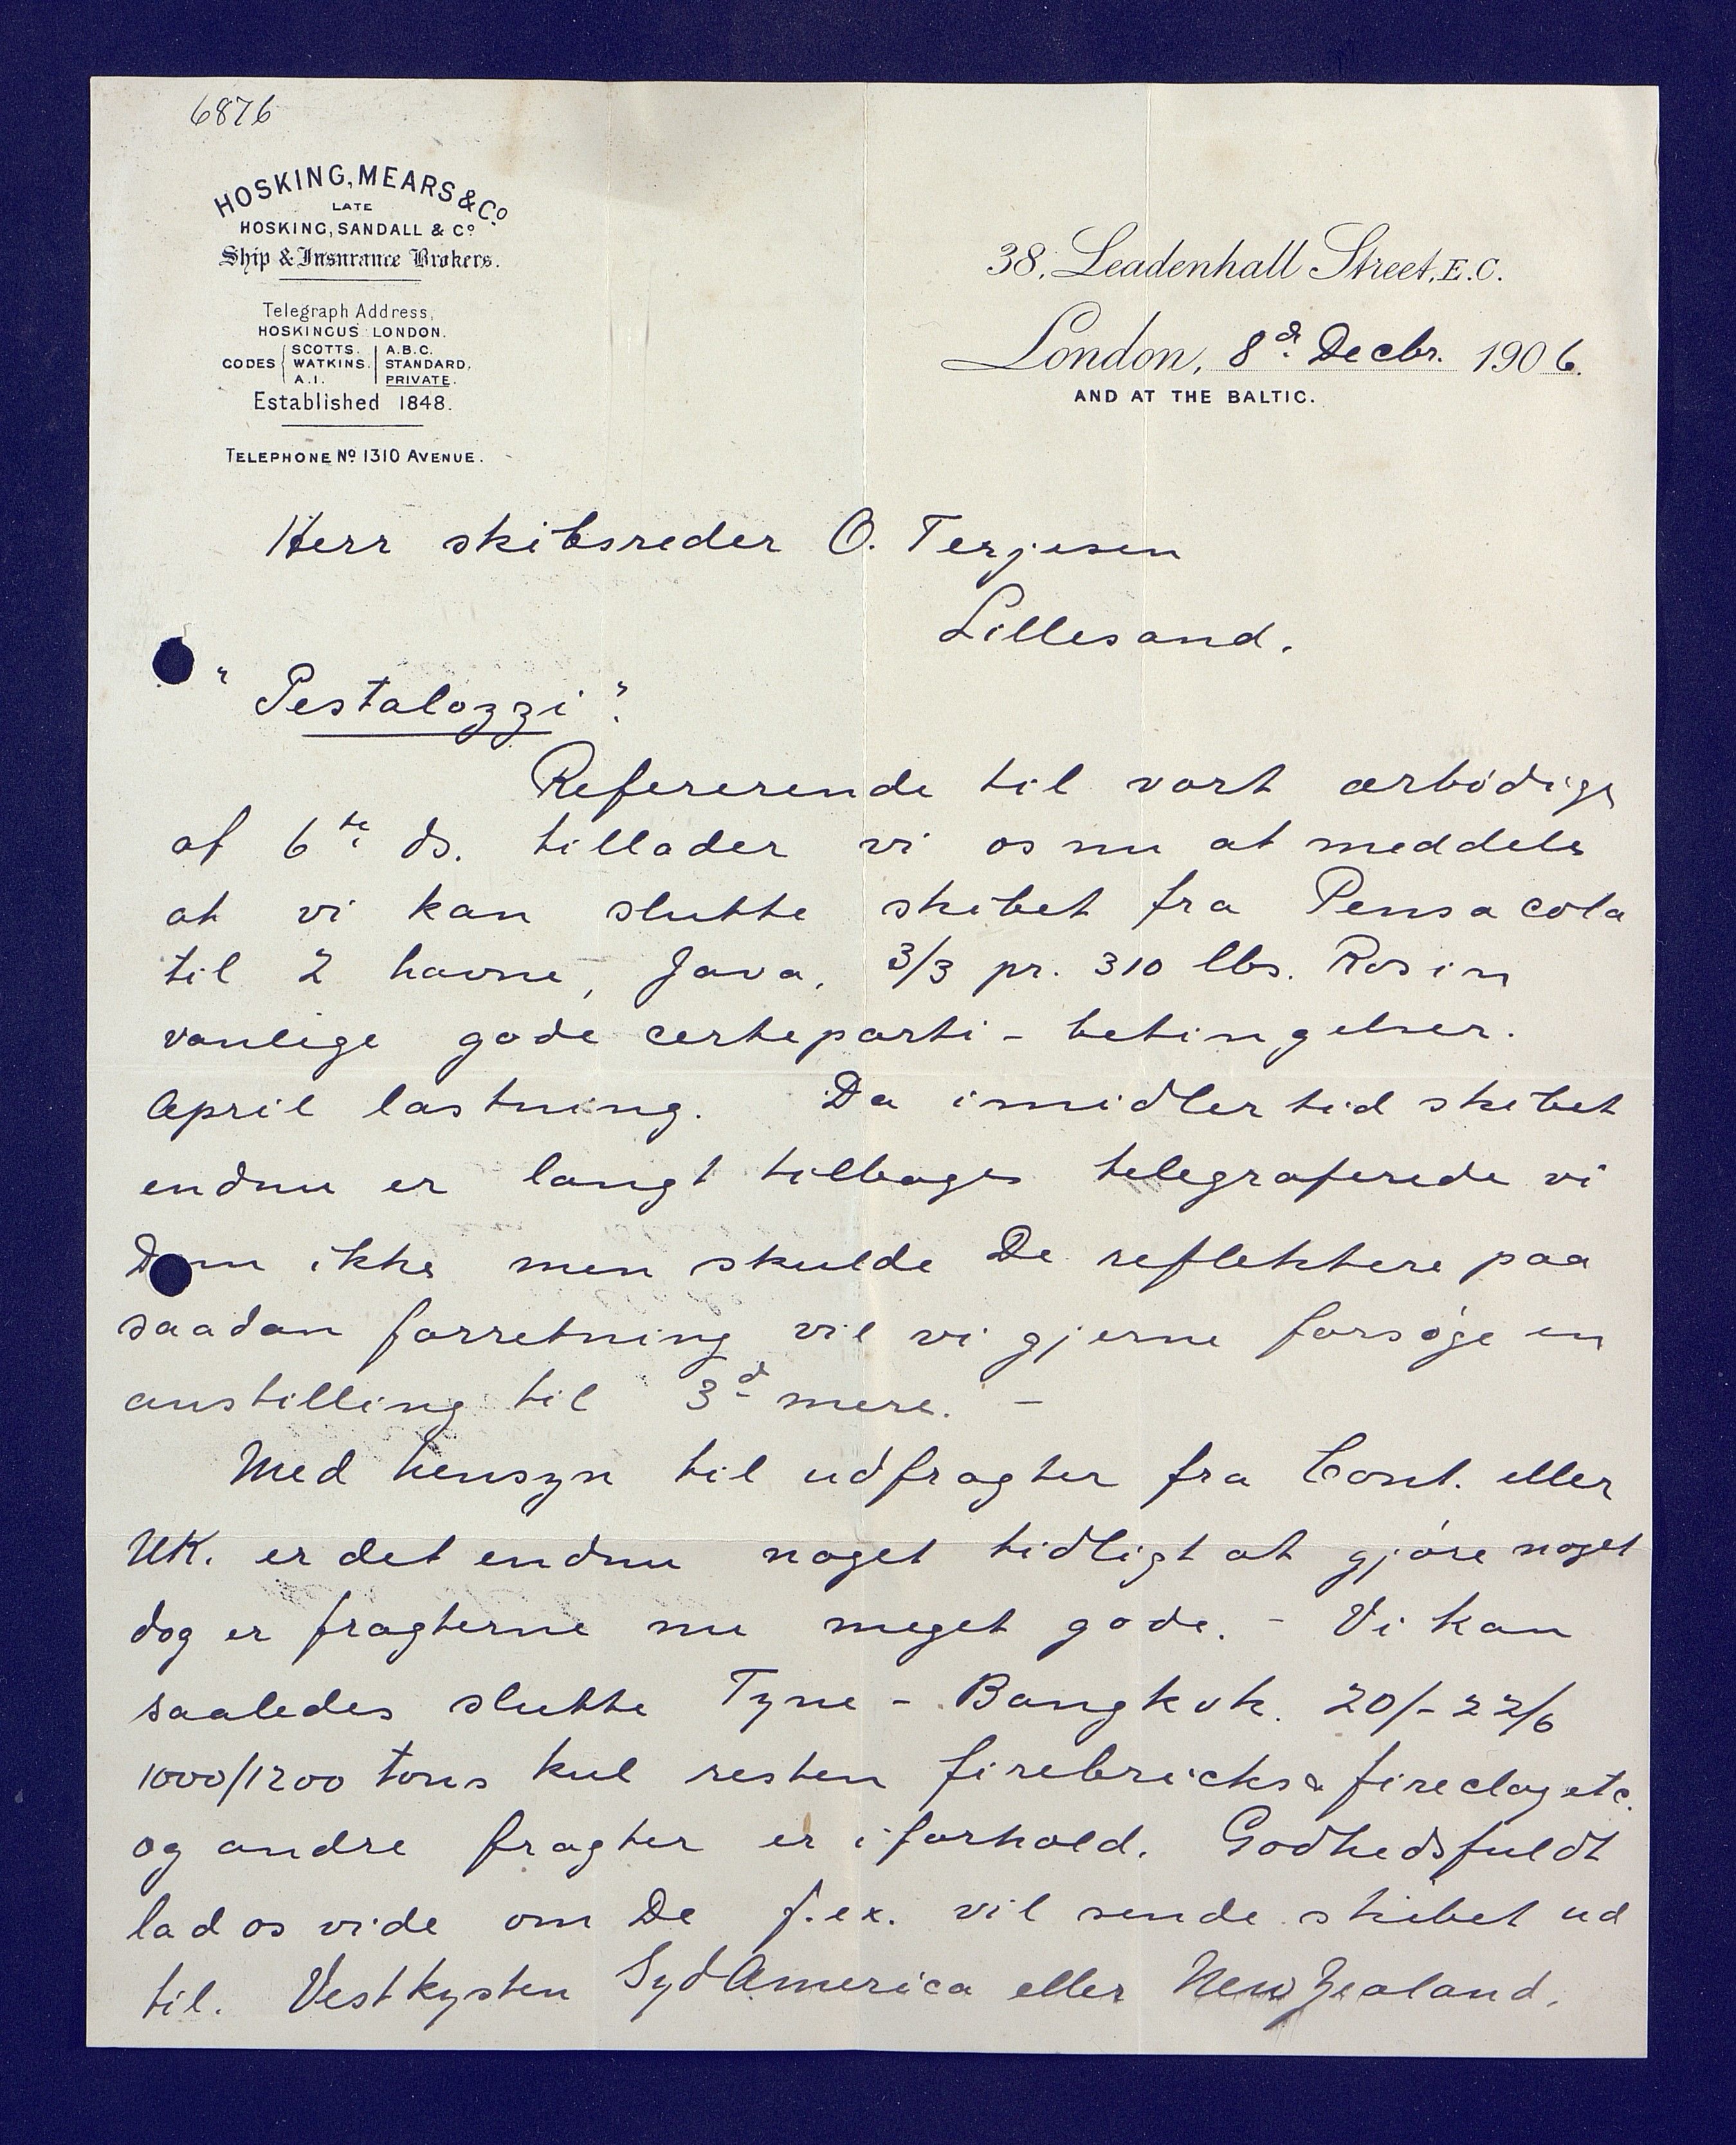 6876
HOSKING, MEARS & Cº.
LATE
HOSKING, SANDALL & Cº
Ship & Insurance Brokers.
Telegraph Address,
HOSKINGUS LONDON.
CODES { SCOTTS. | A.B.C.
WATKINS. | STANDARD.
A.I. | PRIVATE.
Established 1848.
TELEPHONE Nº 1310 AVENUE.
38, Leadenhall Street, E.C.
London, 8d. Decbr. 1906.
AND AT THE BALTIC.
Herr skibsreder O. Terjesen
Lillesand.
"Pestalozzi".
Refererende til vort ærbödige
af 6te ds. tillader vi os nu at meddele
at vi kan slutte skibet fra Pensacola
til 2 havne, Java, 3/3 pr. 310 lbs. Rosin
vanlige gode certeparti-betingelser.
April lastning. Da imidlertid skibet
endnu er langt tilbage telegraferede vi
Dem ikke men skulde De reflektere paa
saadan forretning vil vi gjerne forsøge en
anstilling til 3d mere. -
Med hensyn til udfragter fra Cont. eller
UK. er det endnu noget tidligt at gjøre noget
dog er fragterne nu meget gode. - Vi kan
saaledes slutte Tyne - Bangkok. 20/- 22/6
1000/1200 tons kul resten firebricks & fireclay etc.
og andre fragter er i forhold. Godhedsfuldt
lad os vide om De f.ex. vil sende skibet ud
til. Vestkysten SydAmerica eller New Zealand.